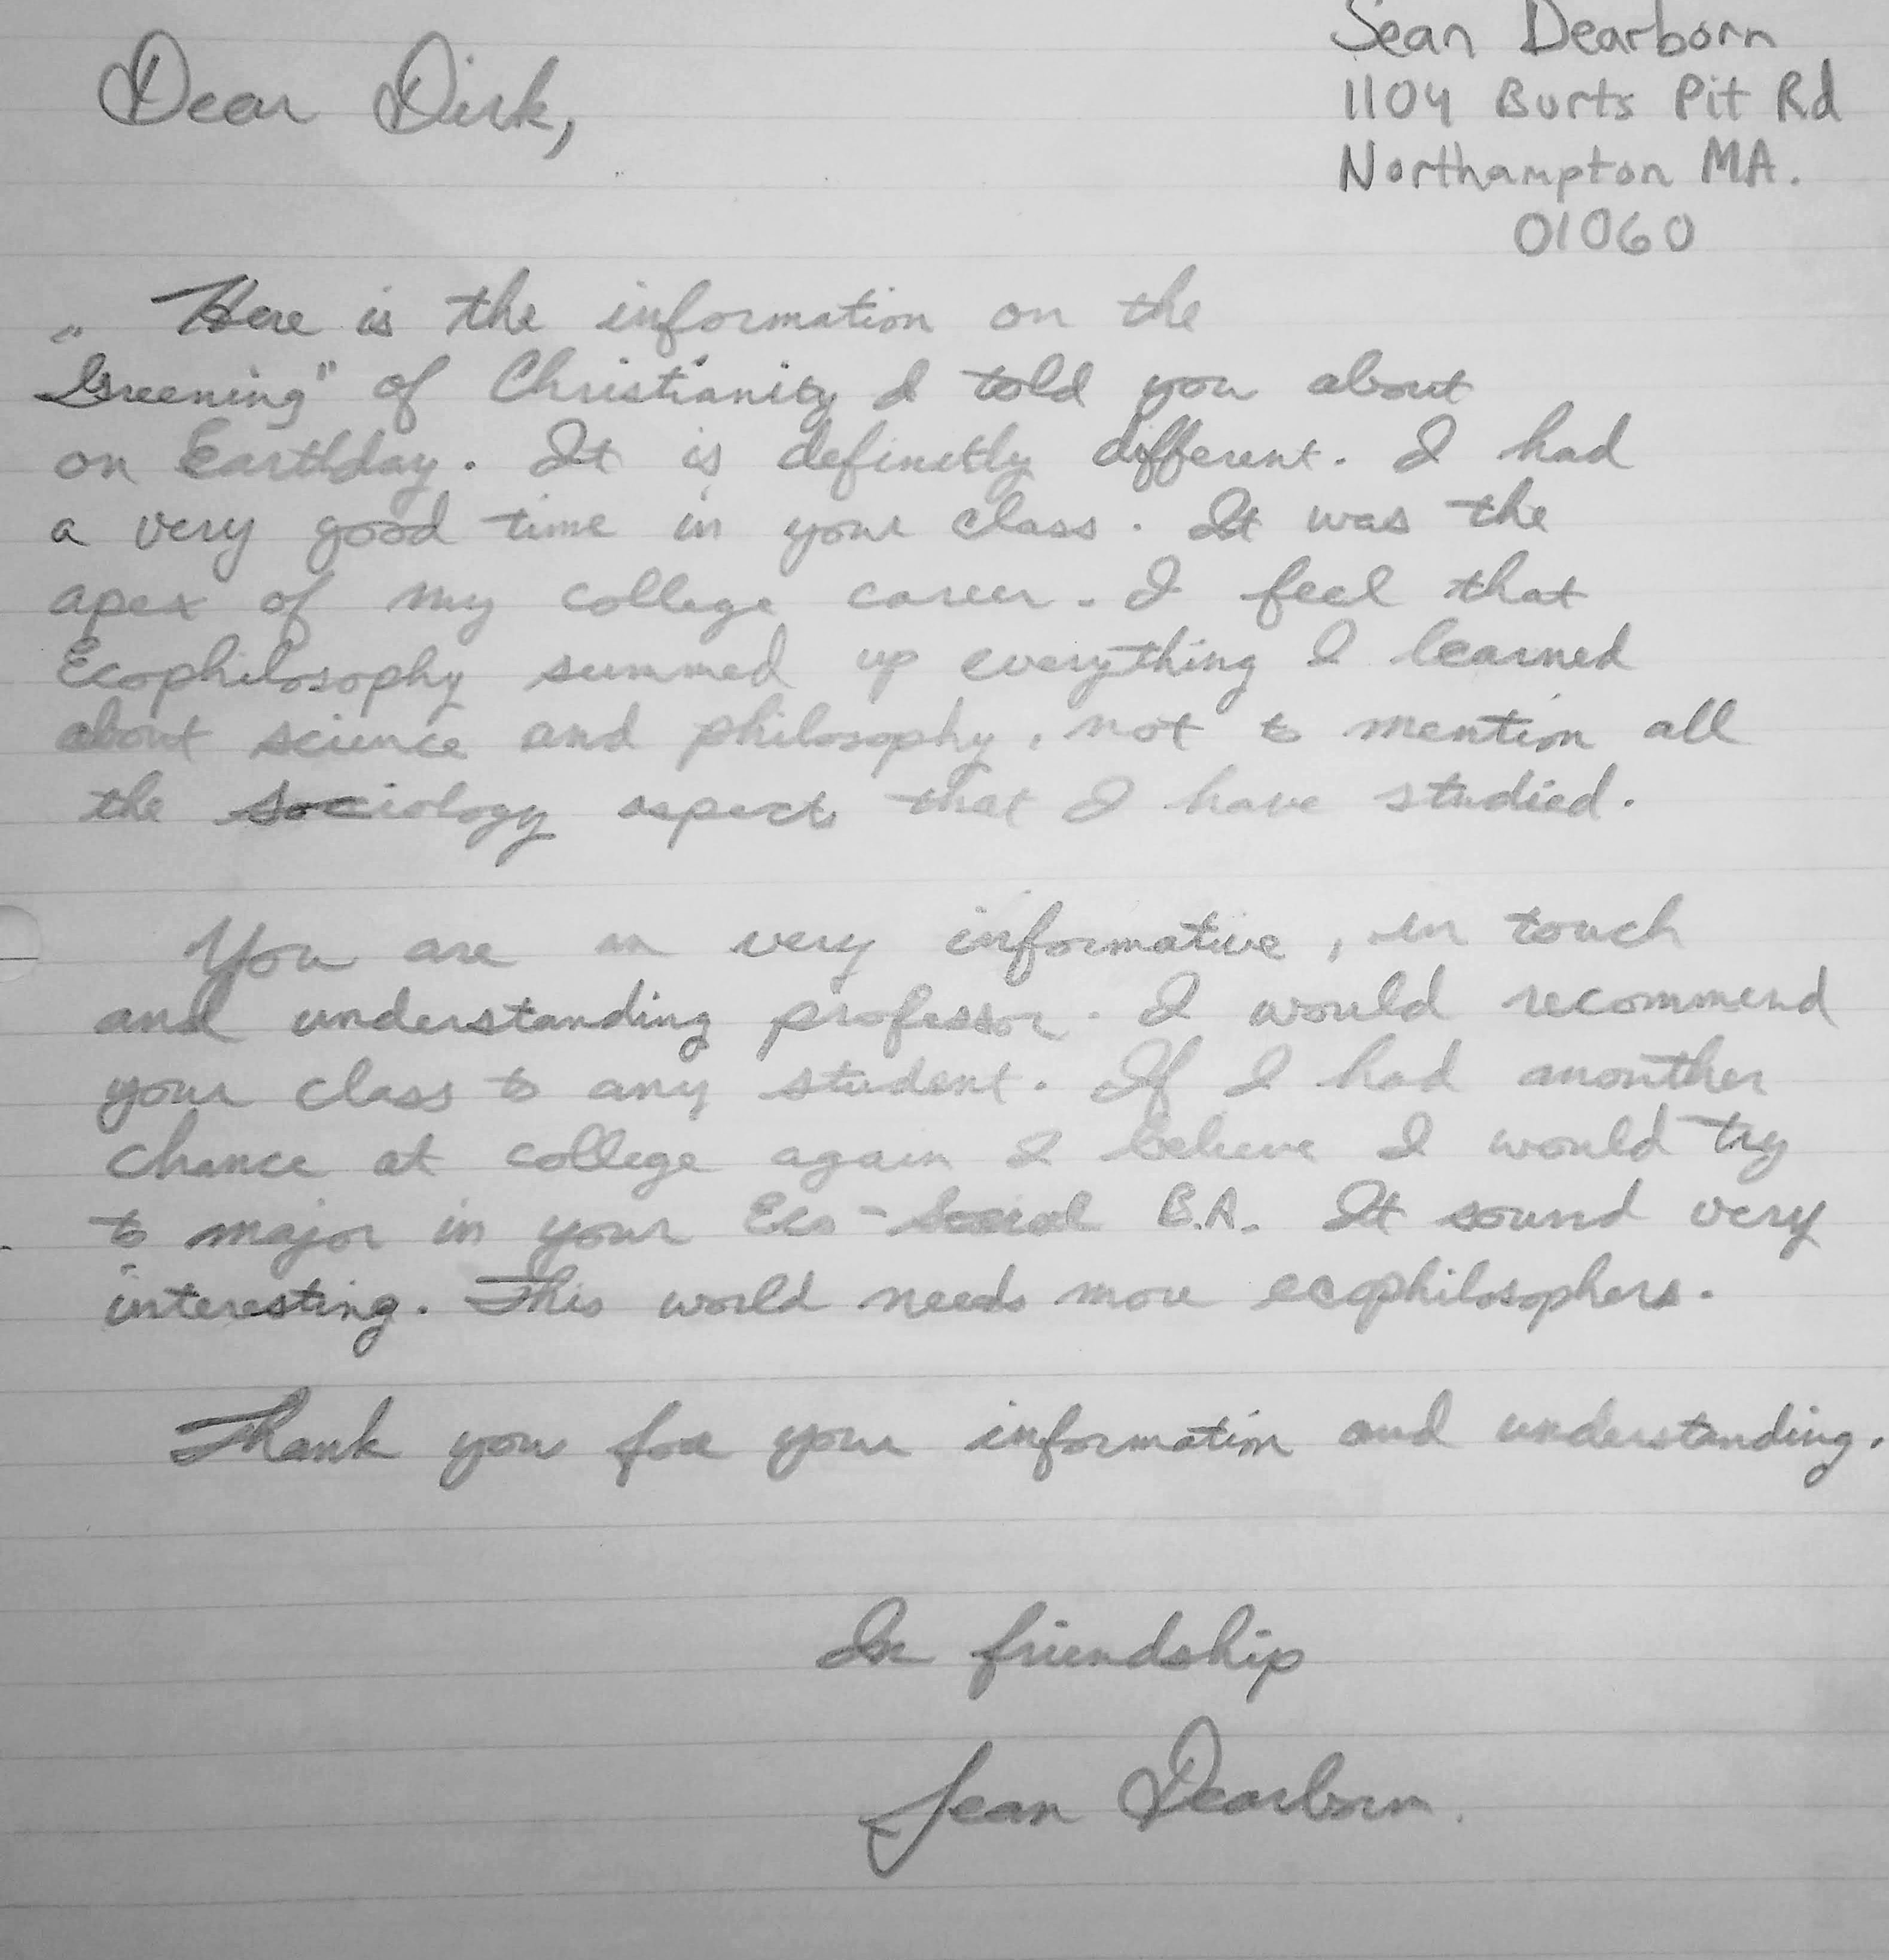 Sean Dearborn
1104 Burts Pit Rd
Northampton MA.
01060
Dear Dirk,
Here is the information on the
"Greening" of Christianity I told you about
on Earthday. It is definetly different. I had
a very good time in your class. It was the
apex of my college career. I feel that
Ecophilosophy summed up everything I learned
about science and philosophy, not to mention all
the sociology aspects that I have studied.
You are a very informative, in touch
and understanding professor. I would recommend
your class to any student. If I had anouther
chance at college again I believe I would try
to major in your Eco-Social B.A. It sound very
interesting. This world needs more ecophilosophers.
Thank you for your information and understanding.
In friendship
Sean Dearborn.